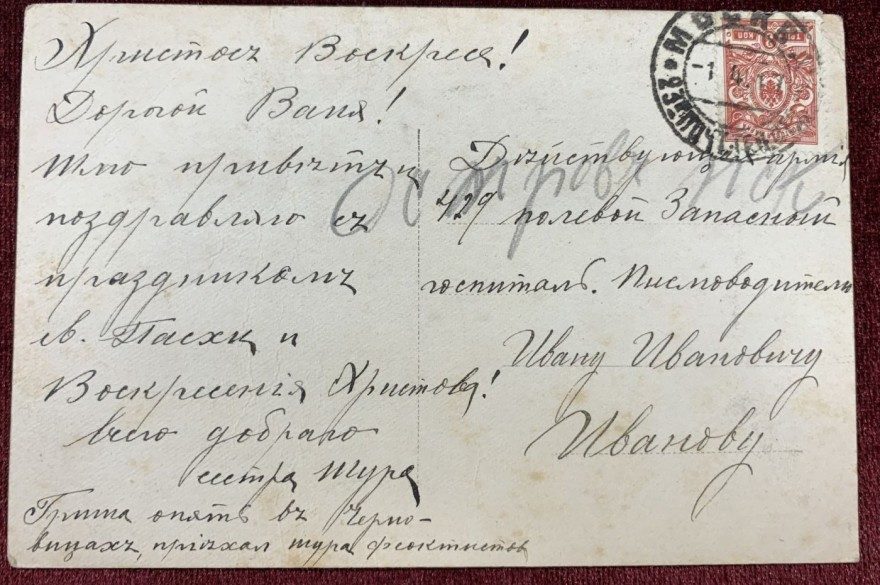 Христосъ Воскресе!
Дорогой Ваня!
Шлю привѣтъ и
поздравляю съ
праздникомъ
св. Пасхи и
Воскресенія Христова!
Всего добраго
сестра Шура
Гриша опять въ Черно-
вицахъ, пріѣхал Шура Феоктистов
МОСКВА
-1.4.17
3 КОП
Дѣйствующ. армія
429 полевой Запасный
госпиталь. Писмоводителю
Ивану Ивановичу
Иванову